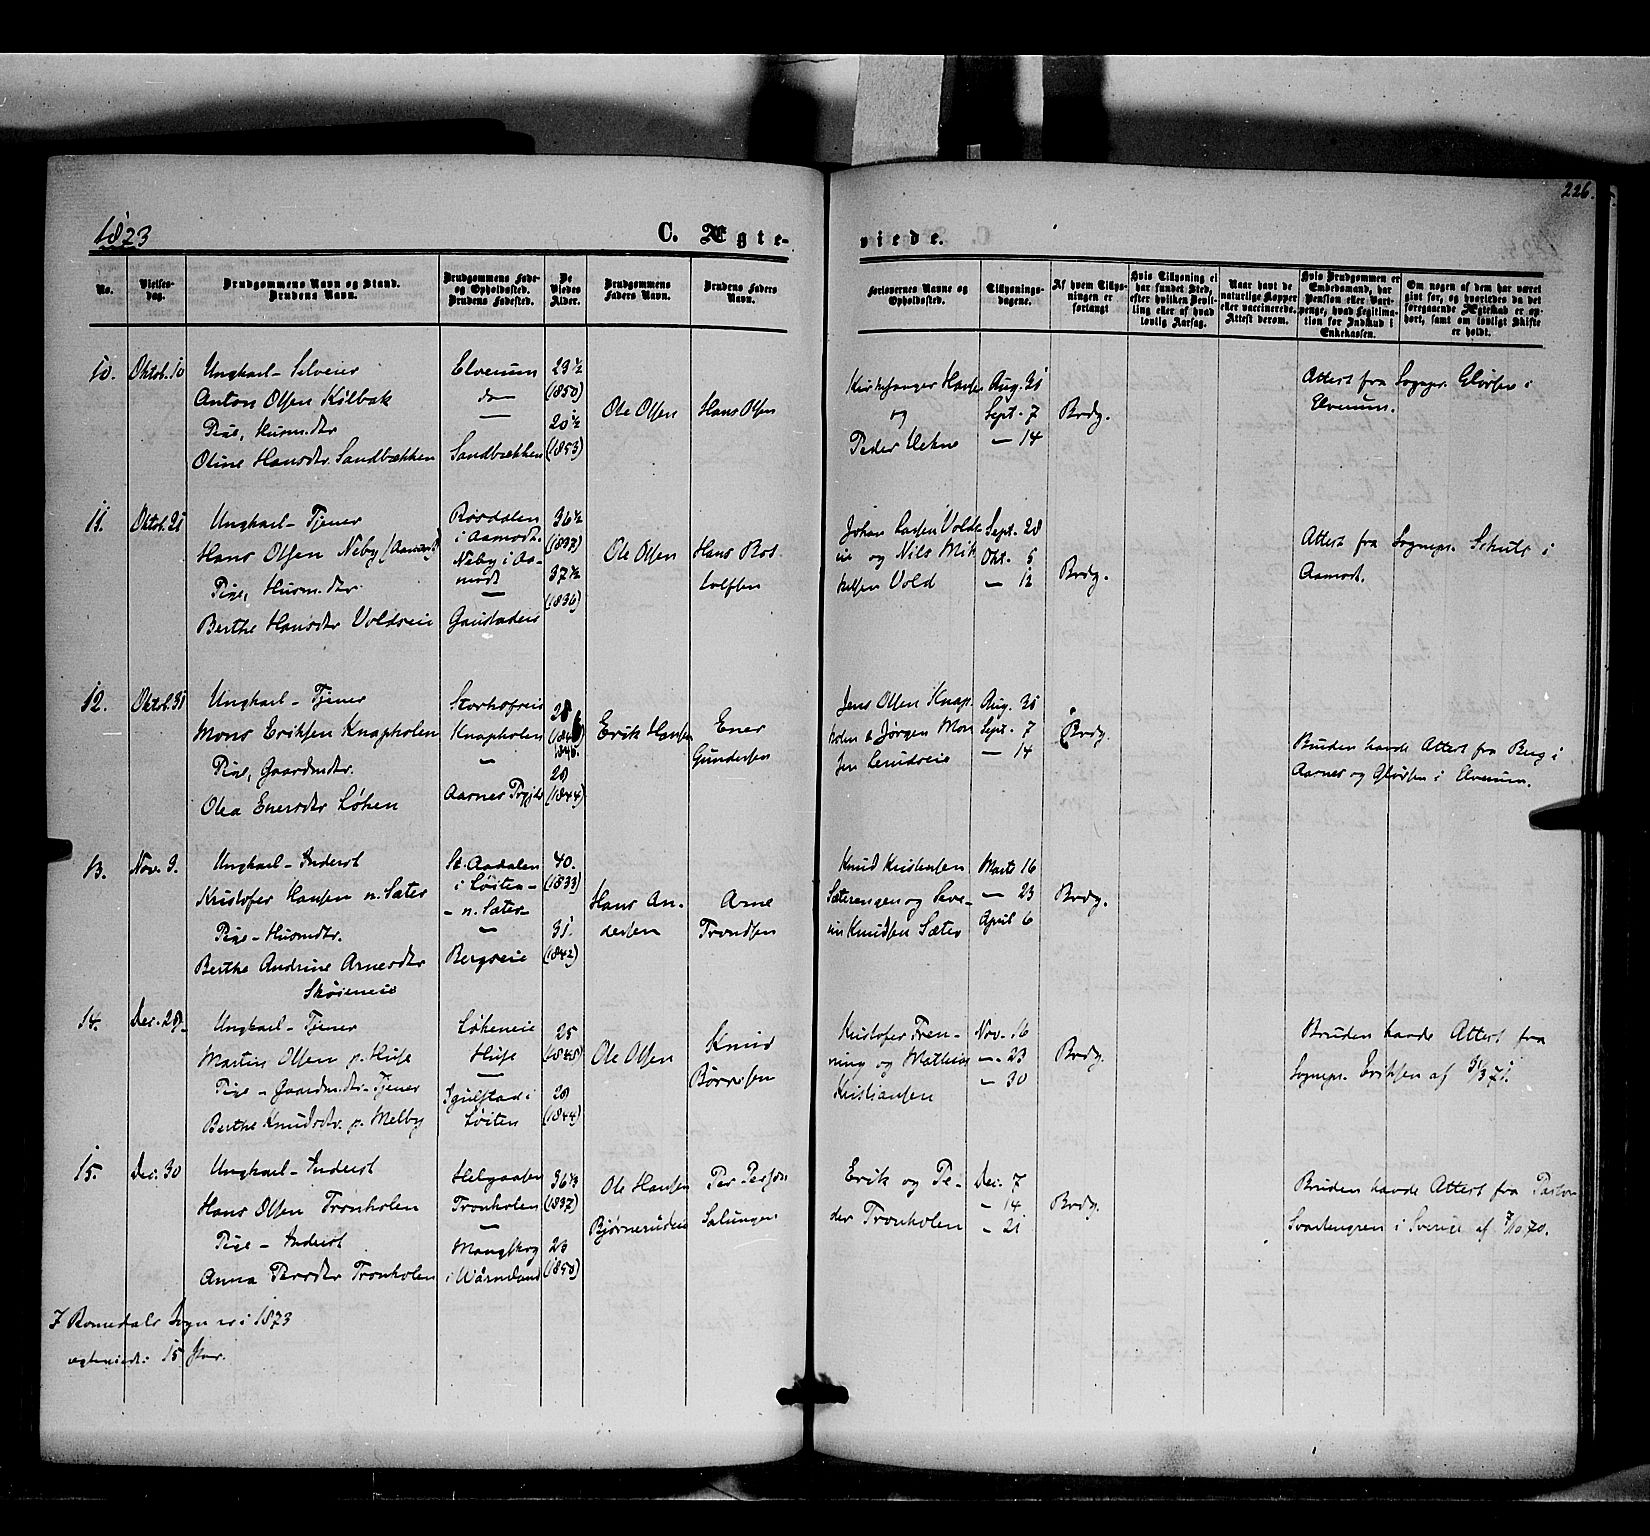 226.
1873
C. Ægte-
viede.
No.
Vielses-
dag.
Brudgommens Navn og Stand.
Brudens Navn.
Brudgommens Føde-
og Opholdssted.
Brudens Fødested.
De
Viedes
Alder.
Brudgommens
Faders Navn.
Brudens Faders
Navn.
Forlovernes Navne og
Opholdssted.
Tillysnings-
dagene.
Af hvem Tillys-
ningen er
forlangt
Hvis Tillysning ei
har fundet Sted,
efter hvilken Bevil-
ling eller af hvad
lovlig Aarsag.
Naar havt de
naturlige Kopper
eller vaccinerede.
Attest derom.
Hvis Brudgommen er
Embedsmand, har
Pension eller Vart-
penge, hvad Legitima-
tion for Indskud i
Enkekassen.
Om nogen af dem har været
gift før, og hvorledes da det
foregaaende Ægteskab er op-
hørt, samt om lovligt Skifte
er holdt.
10.
Oktob. 10
Ungkarl - Selveier
Anton Olsen Kilbak
Pige, Husm.dtr
Oline Hansdtr. Sandbækken
Elverum
do
—
Sandbækken
23 ½
(1850)
20 ½
(1853)
Ole Olsen
Hans Olsen
Kirkesanger Hansen
og
Peder Uekne
Aug. 31
Sept. 7
— 14
Brdg.
Attest fra Sognepr. Glørsen i
Elverum.
11.
Oktob. 21
Ungkarl - Tjener
Hans Olsen Neby (Aamodt)
Pige, Husm.dtr.
Berthe Hansdtr Voldseie
i Aamodt.
Neby i Aa-
modt
—
Gaustadeie
36 ½
(1837)
37 ½
(1836)
Ole Olsen
Hans Bot
tolfsen
Johan Larsen Volds-
eie og Nils Mik
kelsen Vold
Sept. 28
Okt. 5
— 12
Brdg.
Attest fra Sognepr. Schulz i
Aamodt.
12.
Oktob. 31
Ungkarl - Tjener
Mons Eriksen Knapholen
Pige, Gaardm.dtr.
Olea Enersdtr Løken
Storhofseie
Knapholen
—
Aarnes Prgjld
28
1846.
29
(1844)
Erik Hansen
Ener
Gundersen
Jens Olsen Knap-
holen & Jørgen Mon
sen
Aug. 31
Sept. 7
— 14
Brdg.
Bruden havde Attest fra Berg i
Aarnes og Glørsen i Elverum.
13.
Nov. 9.
Ungkarl - Inderst
Kristofer Hansen n. Sæter
Pige - Husmdtr.
Berthe Andrine Arnesdtr
Skøieneie
St. Aadalen
i Løiten -
- n. Sæter -
—
Bergseie
40.
(1833)
31.
(1842)
Hans An-
dersen
Arne
Trondsen
Knud Kristensen
Sæterengen og Seve-
rin Knudsen Sæter
Marts 16
— 23
April 6
Brdg.
14.
Dec. 28.
Ungkarl - Tjener
Martin Olsen p. Huse
Pige - Gaardm.dtr - Tjener
Berthe Knudsdtr. p. Melby
Løkeneie
Huse
—
Sgulstad i
Løiten
25
(1848)
29
(1844)
Ole Olsen
Knud
Børresen
Kristofer Fren-
ning og Mathias
Kristiansen
Nov. 16
— 23
— 30
Brdg.
Bruden havde Attest fra
Sognepr. Eriksen af 31/3 71.
15.
Dec. 30
Ungkarl - Inderst
Hans Olsen Tronholen
Pige - Inderst
Anna Persdtr Tronholen
Helgaasen
Tronholen
—
Mangskog
i Wärmland
36 ½
(1837)
23
(1850)
Ole Hansen
Bjørnerudeie
Per Persson
Salungen
Erik og Pe-
der Tronholen
Dec. 7
— 14
— 21
Brdg.
Bruden havde Attest fra Pastor
Svartengren i Sverige af 7/10 70.
I Romedals Sogn er i 1873
ægteviede: 15 Par.